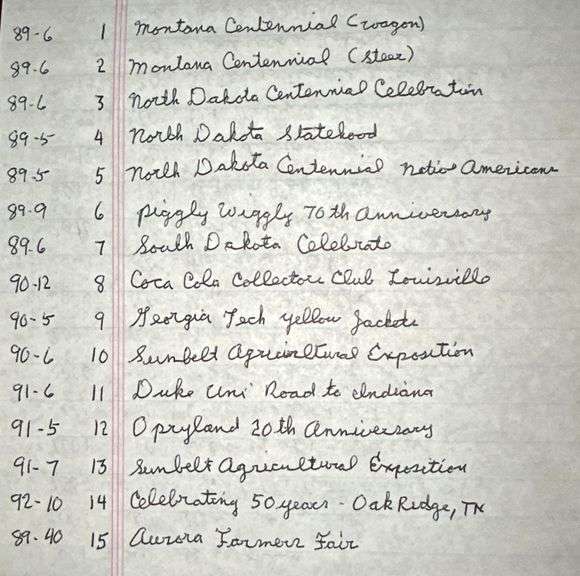 89-6 1 Montana Centennial (wagon)
89-6 2 Montana Centennial (steer)
89-6 3 North Dakota Centennial Celebration
89-5 4 North Dakota Statehood
89-5 5 North Dakota Centennial Native Americans
89-9 6 Piggly Wiggly 70th Anniversary
89-6 7 South Dakota Celebrate
90-12 8 Coca Cola Collectors Club Louisville
90-5 9 Georgia Tech Yellow Jackets
90-6 10 Sunbelt Agricultural Exposition
91-6 11 Duke Uni' Road to Indiana
91-5 12 Opryland 20th Anniversary
91-7 13 Sunbelt Agricultural Exposition
92-10 14 Celebrating 50 years - Oak Ridge, TN
89-40 15 Aurora Farmers Fair